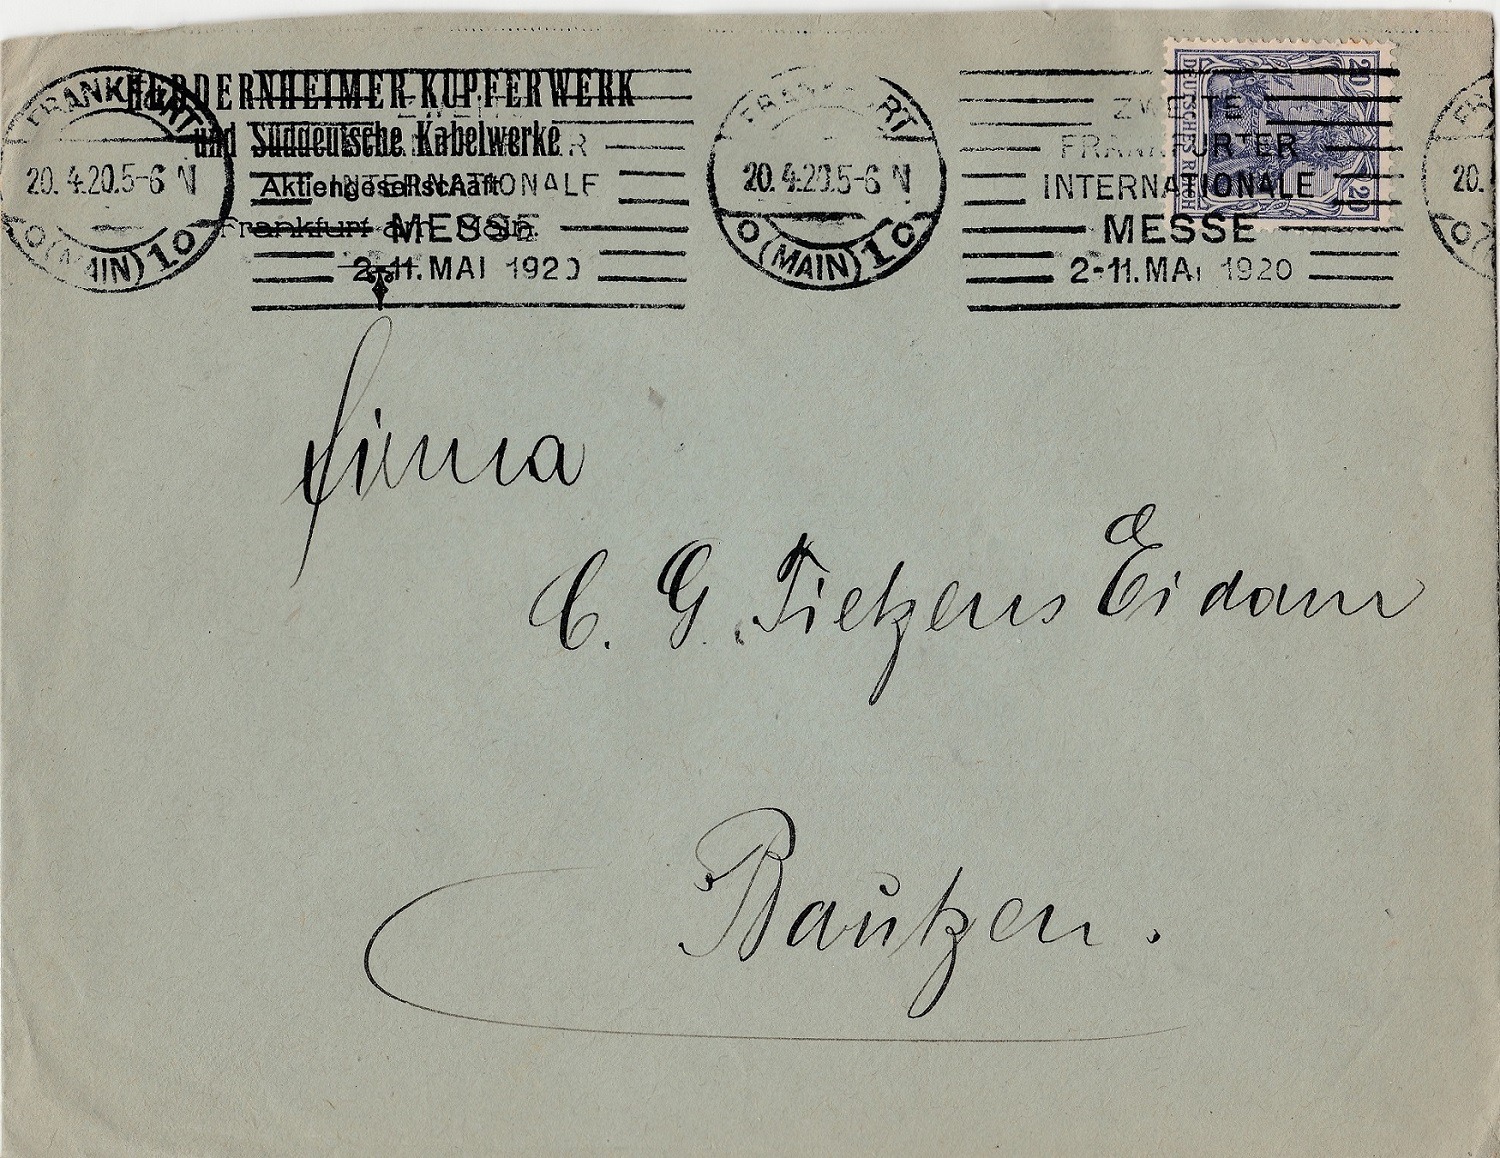 HEDDERNHEIMER KUPFERWERK
und Süddeutsche Kabelwerke
Aktiengesellschaft
Frankfurt am Main.
FRANKFURT
20.4.20.5-6 N
(MAIN) 10
INTERNATIONALE
MESSE
2-11. MAI 1920
FRANKFURT
20.4.20.5-6 N
(MAIN) 10
ZWEITE
FRANKFURTER
INTERNATIONALE
MESSE
2-11. MAI 1920
DEUTSCHES REICH
20
20
FR
20.
Firma
C. G. Tietzens Eidam
Bautzen.